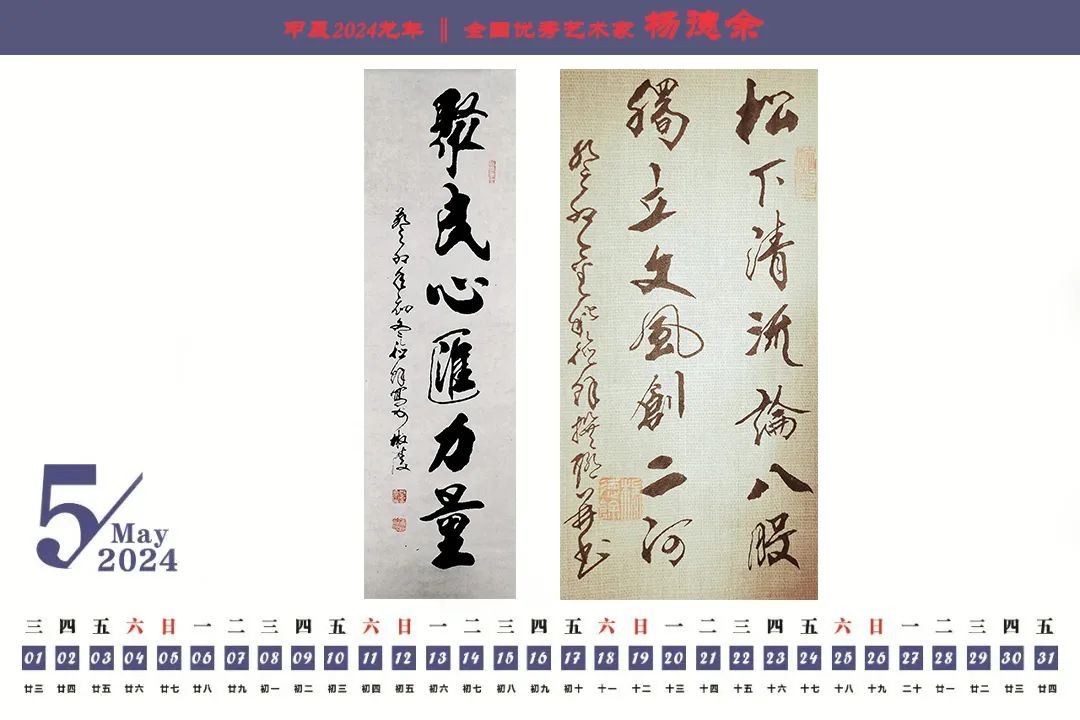 甲辰2024龙年 ‖ 全国优秀艺术家 杨德余
聚民心汇力量
松下清流論八股
獨立文風創二河
5/May
2024
三 四 五 六 日 一 二 三 四 五 六 日 一 二 三 四 五 六 日 一 二 三 四 五 六 日 一 二 三 四 五
01 02 03 04 05 06 07 08 09 10 11 12 13 14 15 16 17 18 19 20 21 22 23 24 25 26 27 28 29 30 31
廿三 廿四 廿五 廿六 廿七 廿八 廿九 初一 初二 初三 初四 初五 初六 初七 初八 初九 初十 十一 十二 十三 十四 十五 十六 十七 十八 十九 二十 廿一 廿二 廿三 廿四